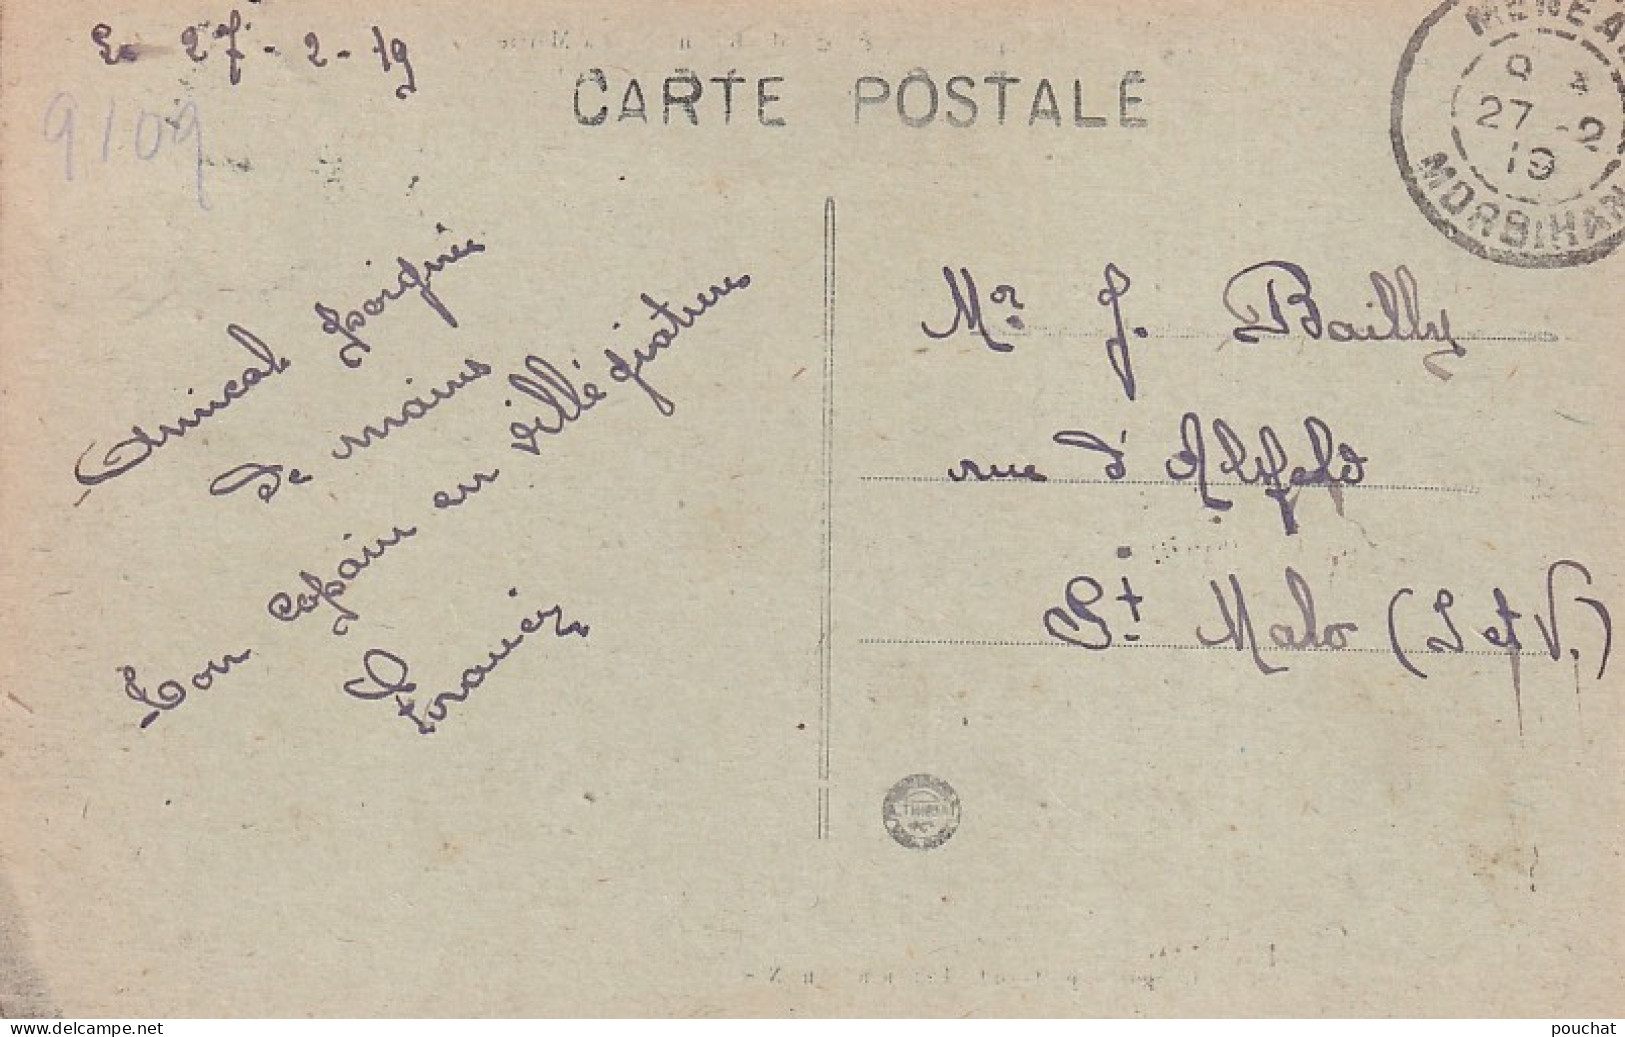 Le 27-2-19
9109
CARTE POSTALE
MENEA
27 -2
19
MORBIHAN
Amicale poignée
de mains
Ton copain en villégiature
Francis
Mr. J. Bailly
rue d'Alsfeld
St. Malo (I et V.)
www.delcampe.net
pouchat